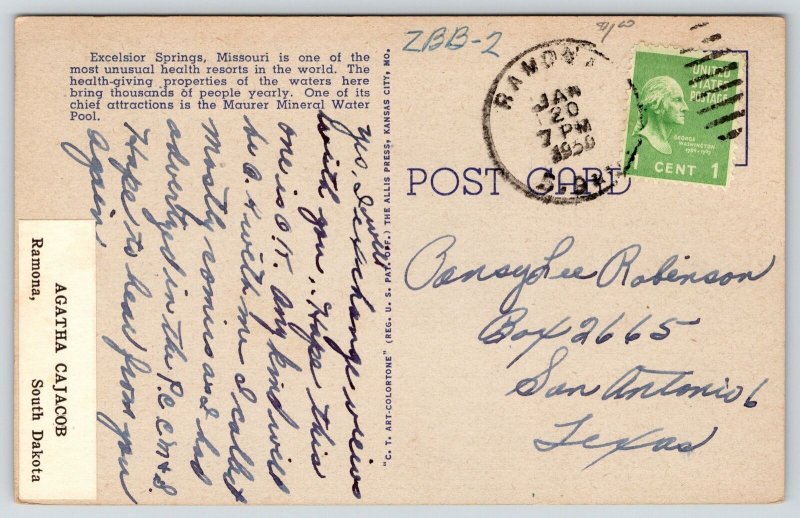 Excelsior Springs, Missouri is one of the
most unusual health resorts in the world. The
health-giving properties of the waters here
bring thousands of people yearly. One of its
chief attractions is the Maurer Mineral Water
Pool.
yes, I will exchange views
with you. Hope this
one is O.K. Any kind will
be O.K. with me I collect
Mostly comics as I had
advertized in the P.C.C.
Hope to hear from you
again
AGATHA CAJACOB
Ramona, South Dakota
"C. T. ART-COLORTONE" (REG. U. S. PAT. OFF.) THE ALLIS PRESS, KANSAS CITY, MO.
ZBB-2
RAMONA
JAN
20
7 PM
1950
S. DAK
UNITED
STATES
POSTAGE
GEORGE
WASHINGTON
1789-1797
CENT 1
POST CARD
Pansy Lee Robinson
Box 2665
San Antonio 6
Texas